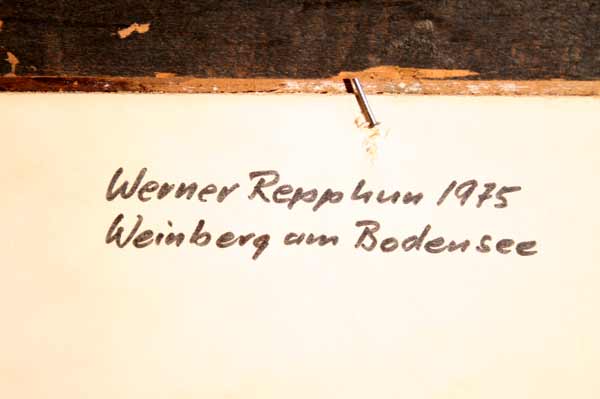 Werner Repphun 1975
Weinberg am Bodensee